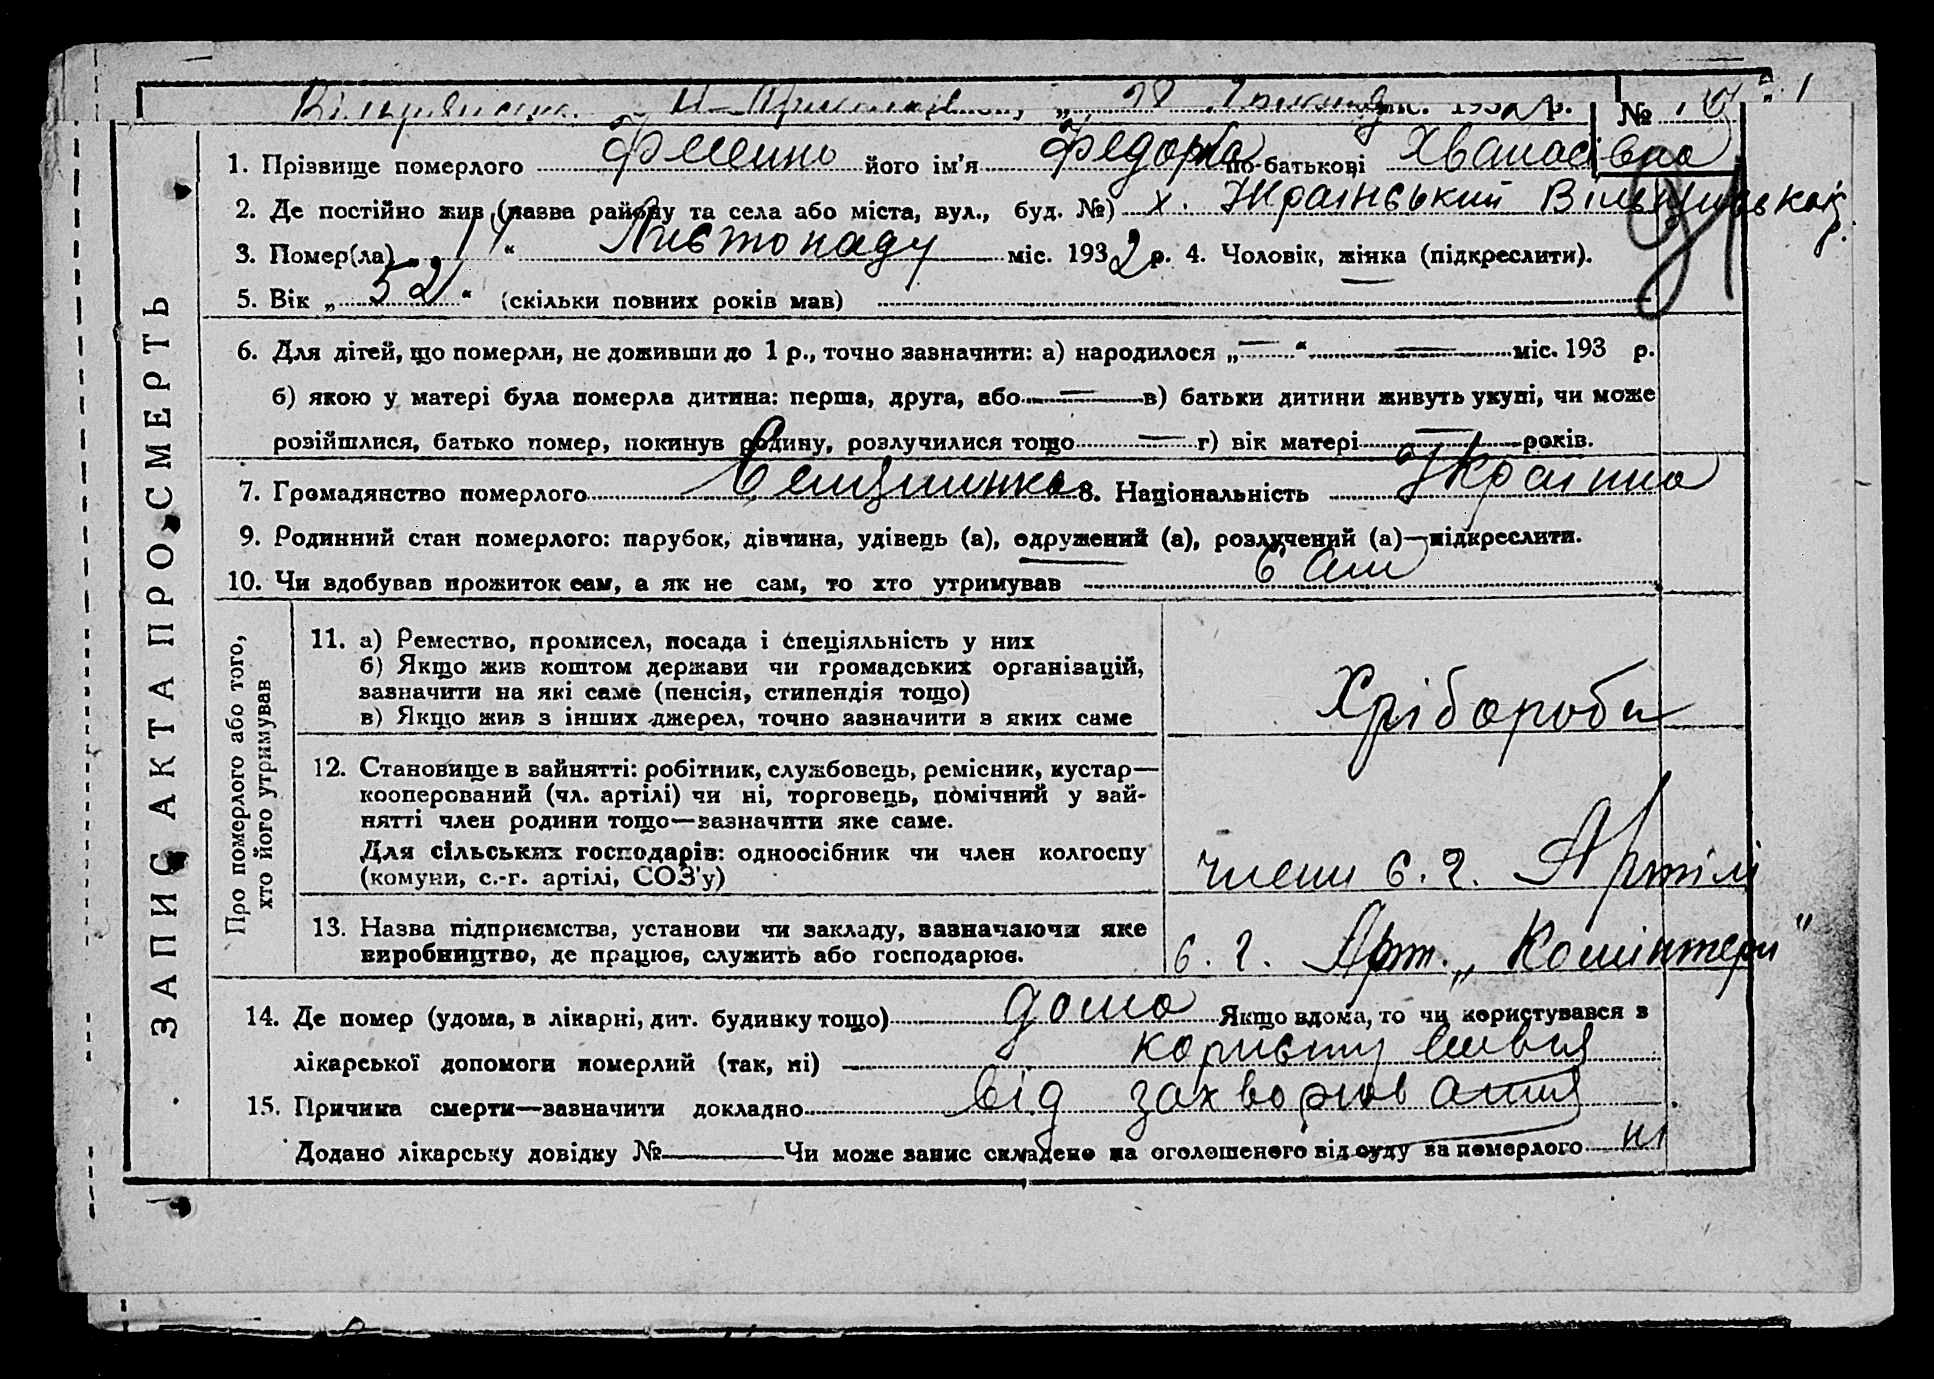 193 р. №
1. Прізвище померлого його ім'я Федорка по-батькові Хванасівна
2. Де постійно жив (назва району та села або міста, вул., буд. №) х. Український
3. Помер(ла) „11“ Листопаду міс. 1932 р. 4. Чоловік, жінка (підкреслити).
5. Вік „52“ (скільки повних років мав)
6. Для дітей, що померли, не доживши до 1 р., точно зазначити: а) народилося „—“ — міс. 193 р.
б) якою у матері була померла дитина: перша, друга, або — в) батьки дитини живуть укупі, чи може
розійшлися, батько помер, покинув родину, розлучилися тощо — г) вік матері — років.
7. Громадянство померлого 8. Національність Українка
9. Родинний стан померлого: парубок, дівчина, удівець (а), одружений (а), розлучений (а)—підкреслити.
10. Чи вдобував прожиток сам, а як не сам, то хто утримував сам
ЗАПИС АКТА ПРО СМЕРТЬ
Про померлого або того,
хто його утримував
11. а) Ремество, промисел, посада і спеціяльність у них
б) Якщо жив коштом держави чи громадських організацій,
зазначити на які саме (пенсія, стипендія тощо)
в) Якщо жив з інших джерел, точно зазначити з яких саме
Хрібороби
12. Становище в зайнятті: робітник, службовець, ремісник, кустар—
кооперований (чл. артілі) чи ні, торговець, помічний у зай-
нятті член родини тощо—зазначити яке саме.
Для сільських господарів: одноосібник чи член колгоспу
(комуни, с.-г. артілі, СОЗ'у)
члени с. г. Артілі
13. Назва підприємства, установи чи закладу, зазначаючи яке
виробництво, де працює, служить або господарює.
с. г. Арт. „Комінтерн"
14. Де помер (удома, в лікарні, дит. будинку тощо) дома Якщо вдома, то чи користувався з
лікарської допомоги померлий (так, ні)
15. Причина смерти—зазначити докладно від захворювання
Додано лікарську довідку № — Чи може запис складено на оголошеного від суду за померлого ні